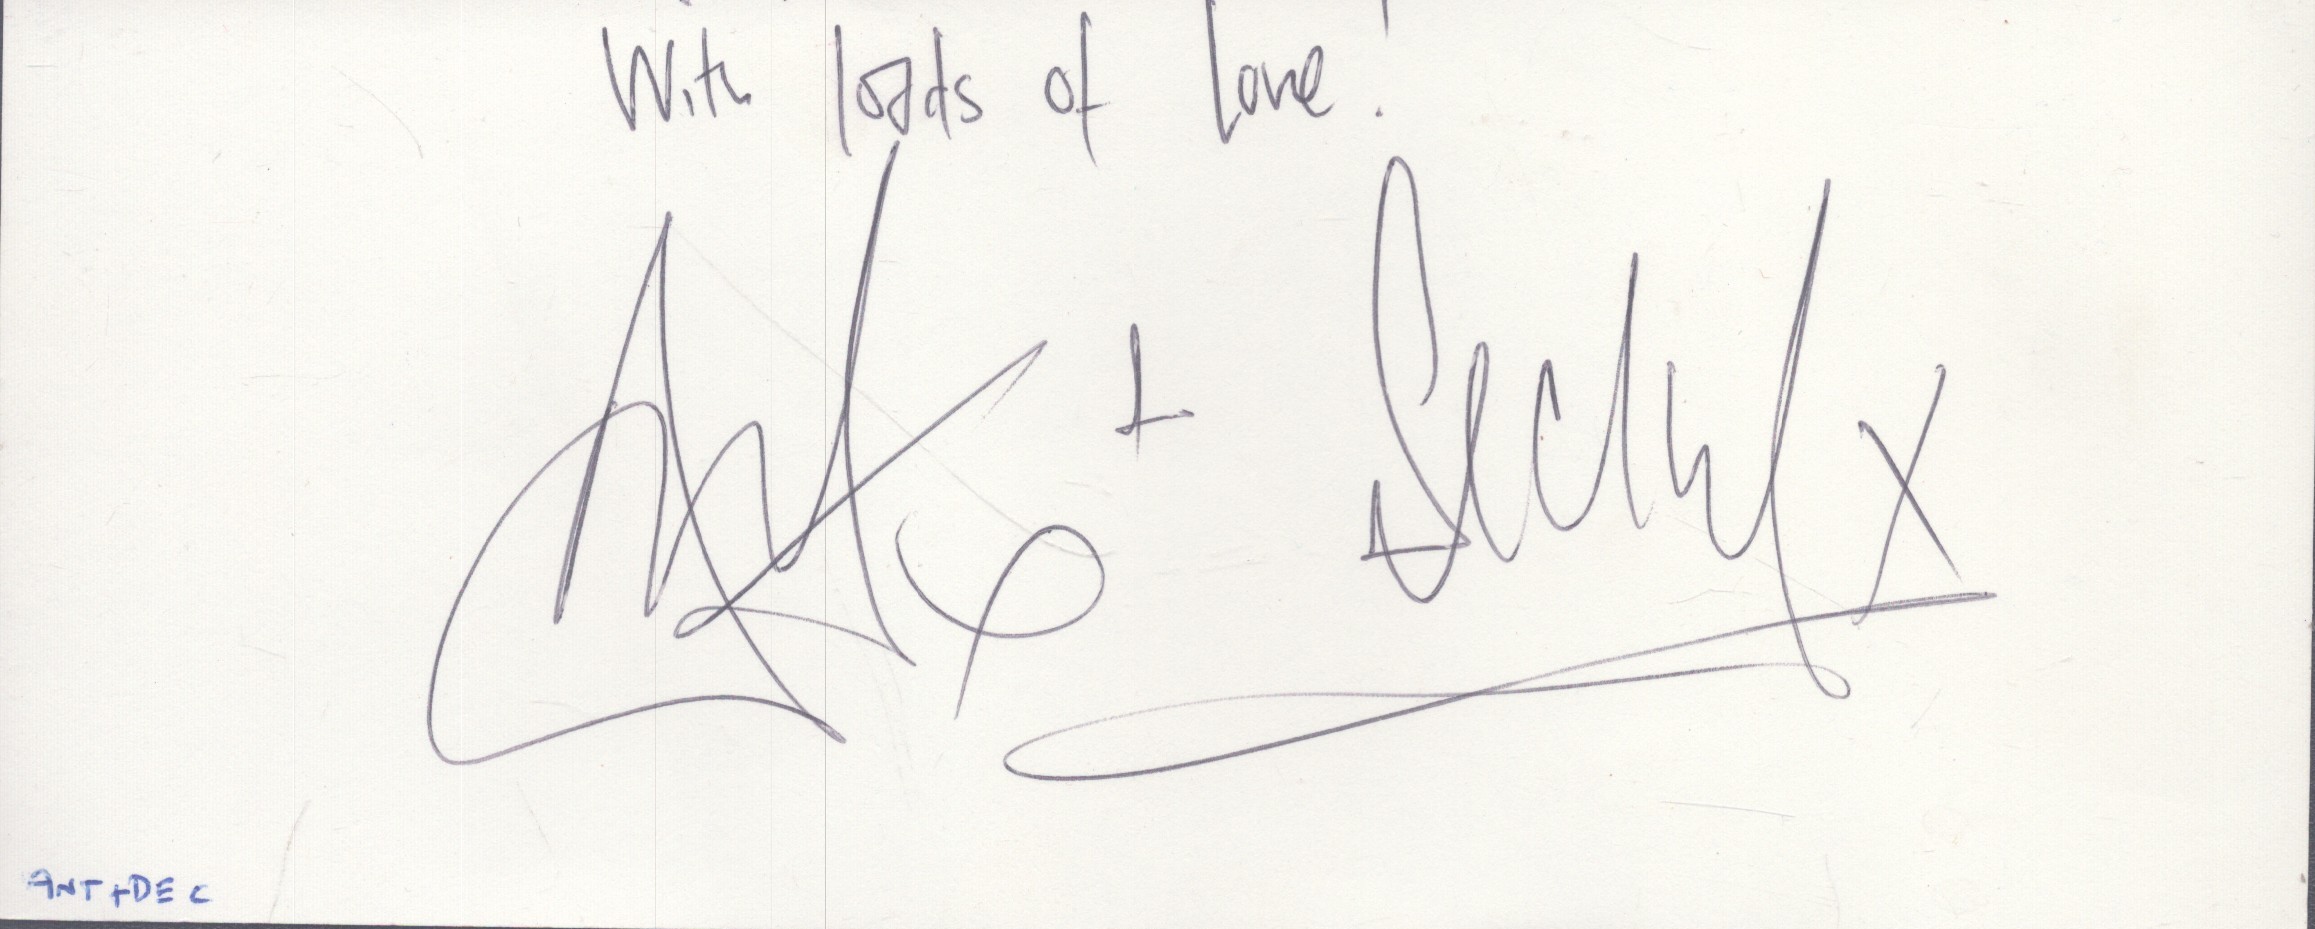 With loads of love!
Ant + Declan x
ANT + DEC